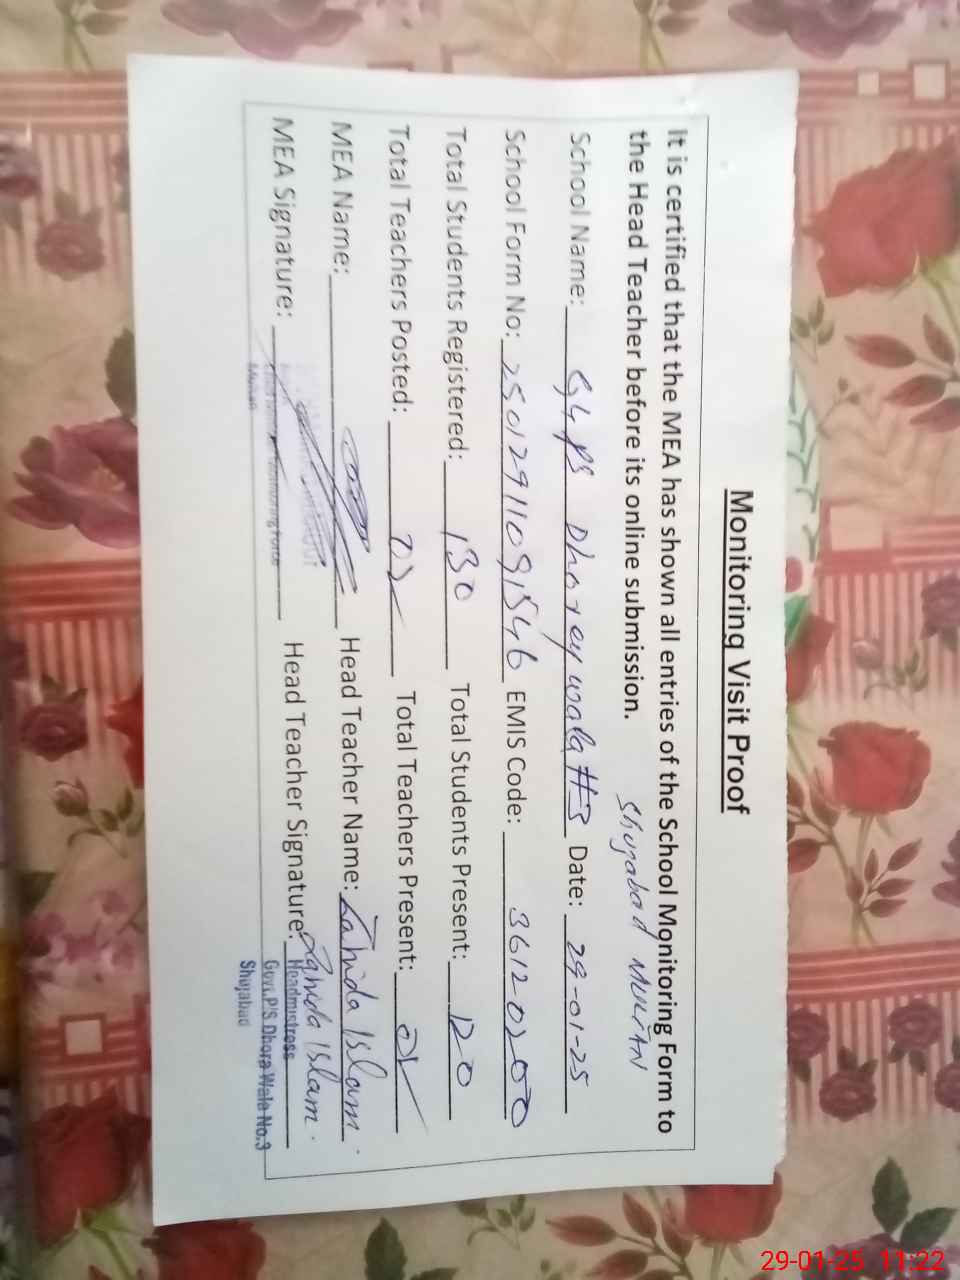 Monitoring Visit Proof
It is certified that the MEA has shown all entries of the School Monitoring Form to
the Head Teacher before its online submission. Shujabad MULTAN
School Name: G4 PS Dhoraywala #3 Date: 29-01-25
School Form No: EMIS Code:
Total Students Registered: 130 Total Students Present: 120
Total Teachers Posted: 02 Total Teachers Present: 02
MEA Name: Head Teacher Name: Zahida Islam.
MEA Signature: Head Teacher Signature: Zahida Islam.
Monitoring Force
Multan
Headmistress
Govt.P/S Dhora Wala No.3
Shujabad
29-01-25 11:22